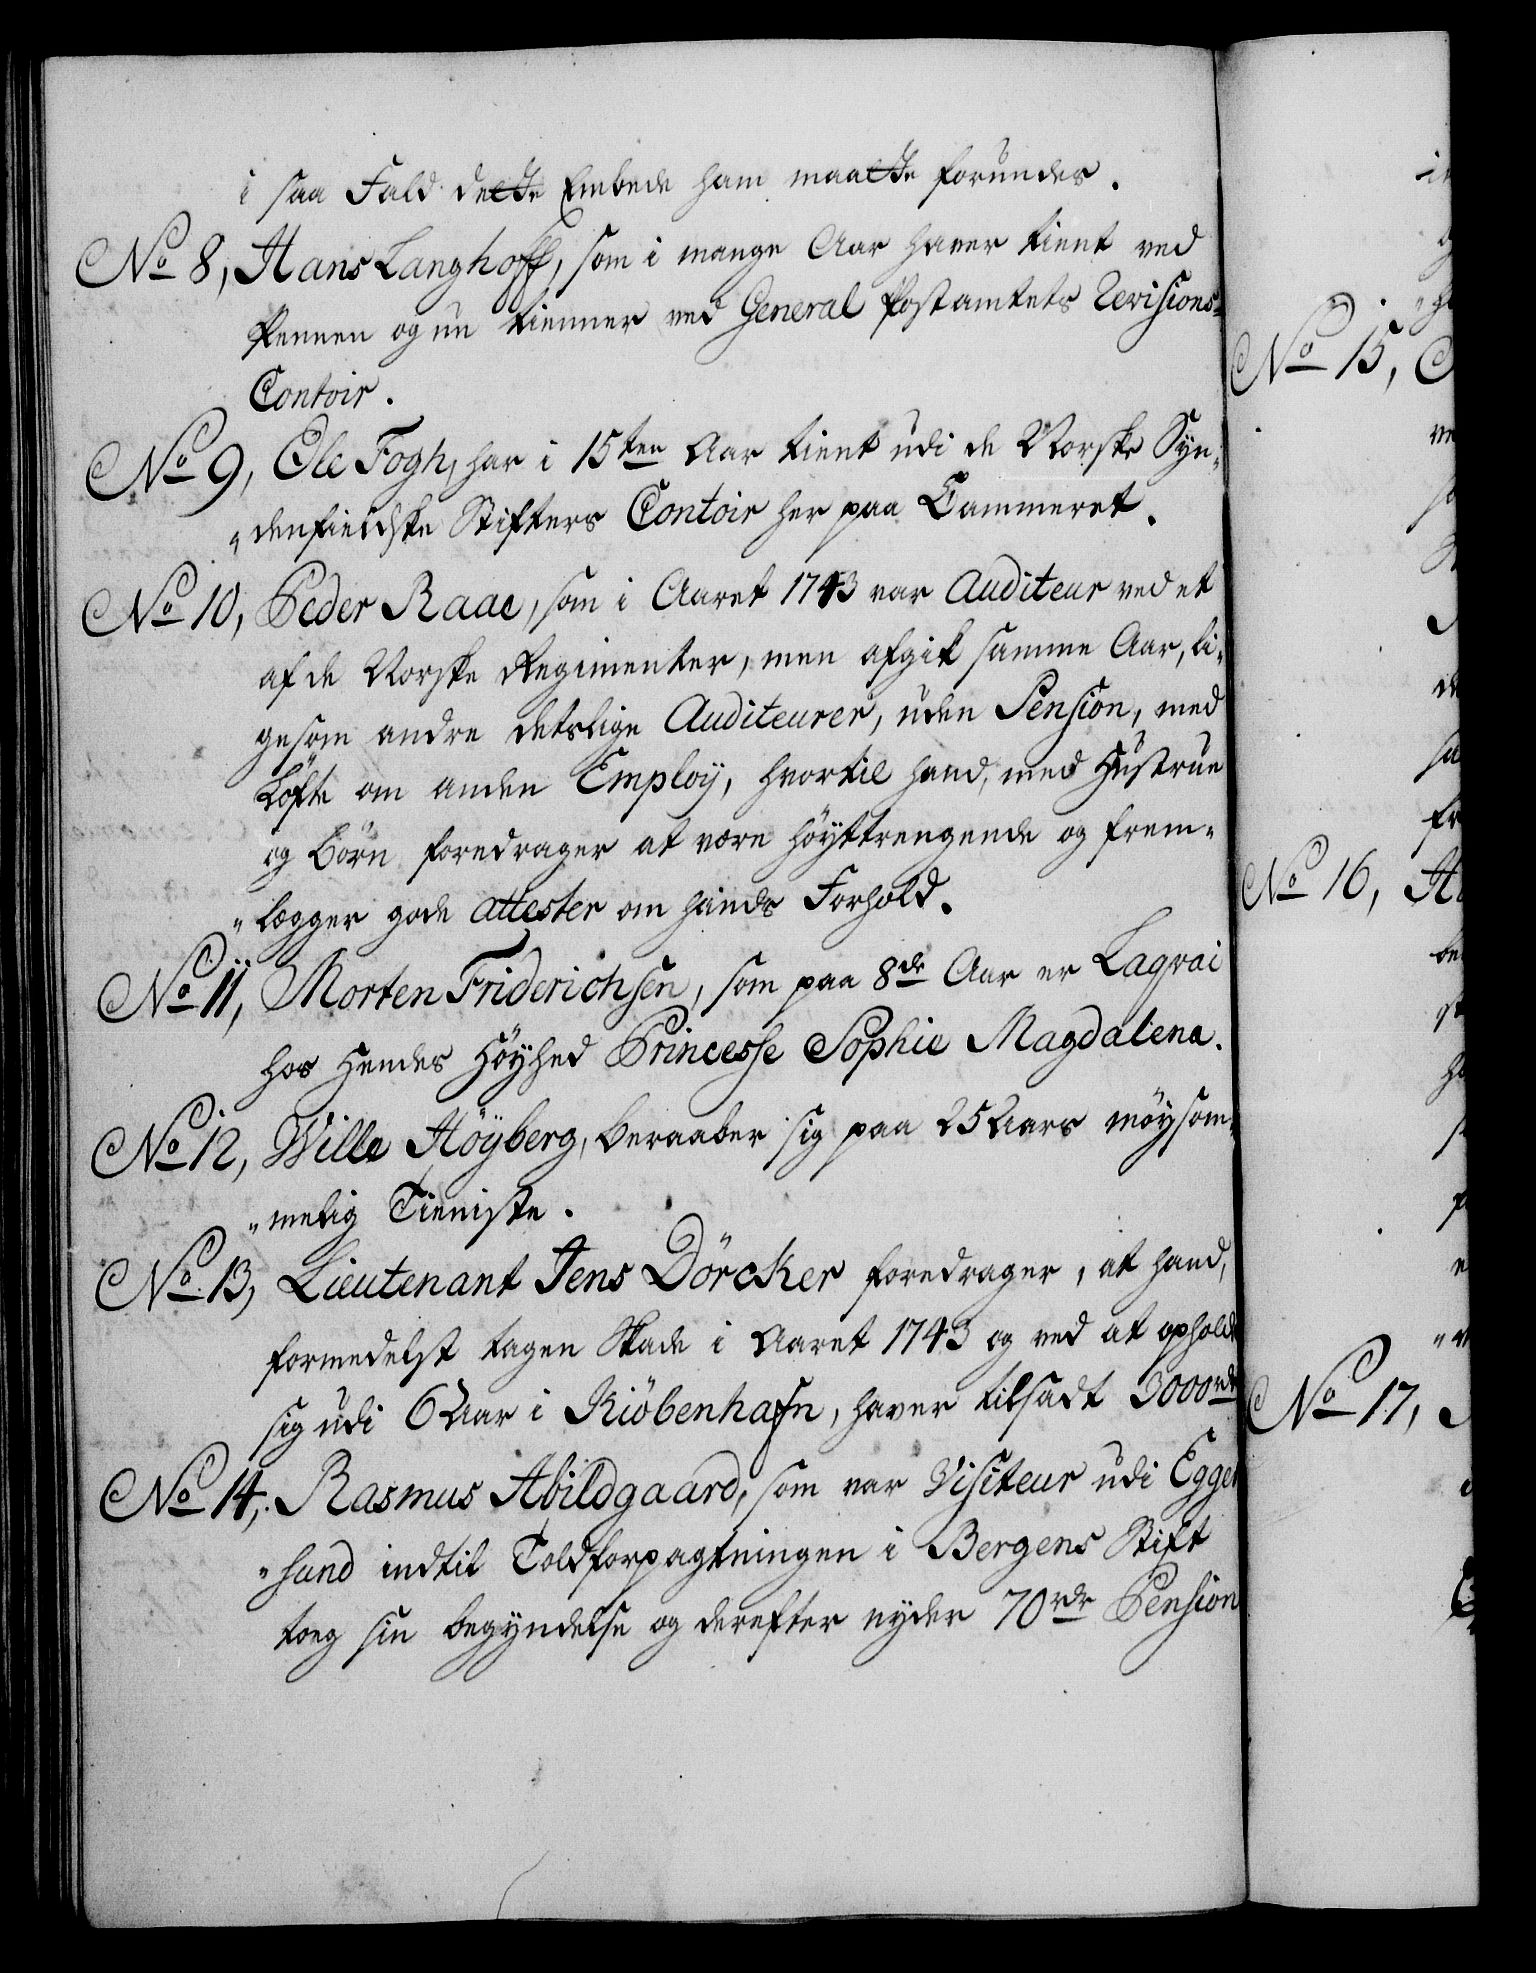 i saa Fald dette Embede ham maatte forundes.
No 8, Hans Langhoff, som i mange Aar haver tient ved
Pennen og nu tienner ved General Postamtets Revisions-
Contoir.
No 9, Ole Fogh, har i 15ten Aar tient udi de Norske Syn-
"denfieldske Stifters Contoir her paa Cammeret.
No 10, Peder Raae, som i Aaret 1743 var Auditeur ved et
af de Norske Regimenter, men afgik samme Aar, li-
gesom andre detslige Auditeurer, uden Pension, med
Löfte om anden Employ, hvortil hand, med Hustrue
og Börn foredrager at være höyttrengende og frem-
"lægger gode attester om hands Forhold.
No 11, Morten Friderichsen, som paa 8de Aar er Laqvai
hos Hendes Höyhed Princesse Sophie Magdalena.
No 12, Wille Höyberg, beraaber sig paa 25 Aars möysom-
"melig Tieniste.
No 13, Lieutenant Jens Dörcker foredrager, at hand,
formedelst tagen Skade i Aaret 1743 og ved at opholde
sig udi 6 Aar i Kiöbenhafn, haver tilsadt 3000rdr
No 14, Rasmus Abildgaard, som var Visiteur udi Egger
"sund indtil Toldforpagtningen i Bergens Stift
toeg sin begyndelse og derefter nyder 70rdr Pension
No 15,
No 16,
No 17,